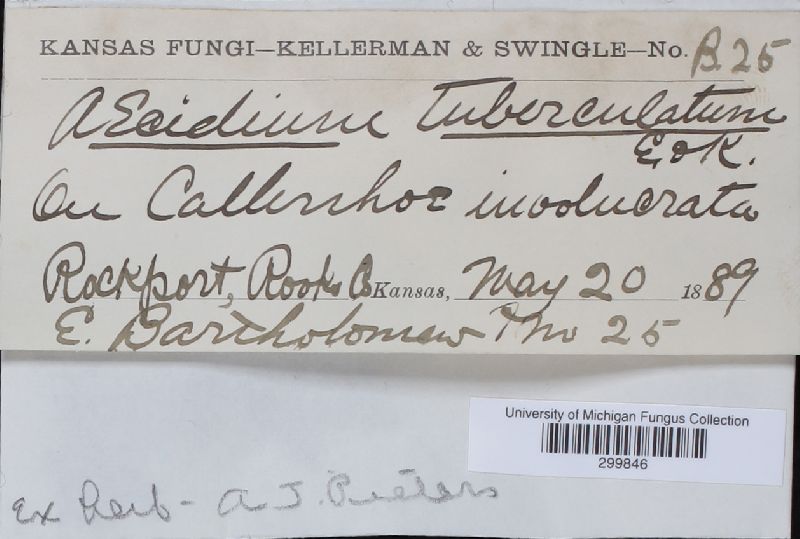 KANSAS FUNGI—KELLERMAN & SWINGLE—No. B 25
AEcidium tuberculatum
E & K.
On Callirrhoe involucrata
Rockport, Rooks Co Kansas, May 20 1889
E. Bartholomew No 25
University of Michigan Fungus Collection
299846
Ex herb - A J. Pieters